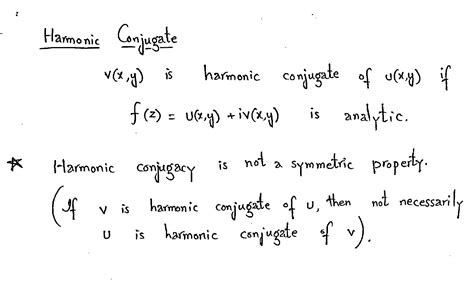 Harmonic Conjugate
v(x,y) is harmonic conjugate of u(x,y) if
f(z) = u(x,y) + iv(x,y) is analytic.
* Harmonic conjugacy is not a symmetric property.
(If v is harmonic conjugate of u, then not necessarily
u is harmonic conjugate of v).